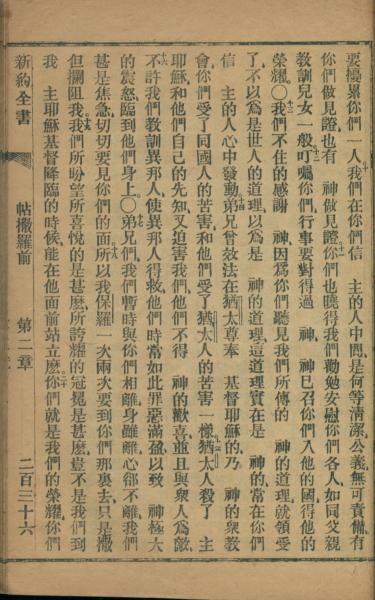 要擾累你們一人我們在你們信　主的人中間是何等清潔公義無可責備有
你們做見證也有　神做見證你們也曉得我們勸勉安慰你們各人如同父親
教訓兒女一般叮囑你們行事要對得過　神　神已召你們入他的國得他的
榮耀〇我們不住的感謝　神因為你們聽見我們所傳的　神的道理就領受
了不以為是世人的道理以為是　神的道理這道理實在是　神的常在你們
信　主的人心中發動弟兄曾效法在猶太尊奉　基督耶穌的乃　神的眾教
會你們受了同國人的苦害和他們受了猶太人的苦害一樣猶太人殺了　主
耶穌和他們自己的先知又迫害我們他們不得　神的歡喜並且與眾人為敵
不許我們教訓異那人使異那人得救他們時常如此罪惡滿盈以致　神極大
的震怒臨到他們身上〇弟兄們我們暫時與你們相離身雖離心卻不離我們
甚是焦急切切要見你們的面所以我保羅一次兩次要到你們那裏去只是撒
但攔阻我我們所盼望所喜悅的是甚麼所誇耀的冠冕是甚麼豈不是我們到
我　主耶穌基督降臨的時候能在他面前站立麼你們就是我們的榮耀你們
新約全書　帖撒羅前　第二章　二百三十六